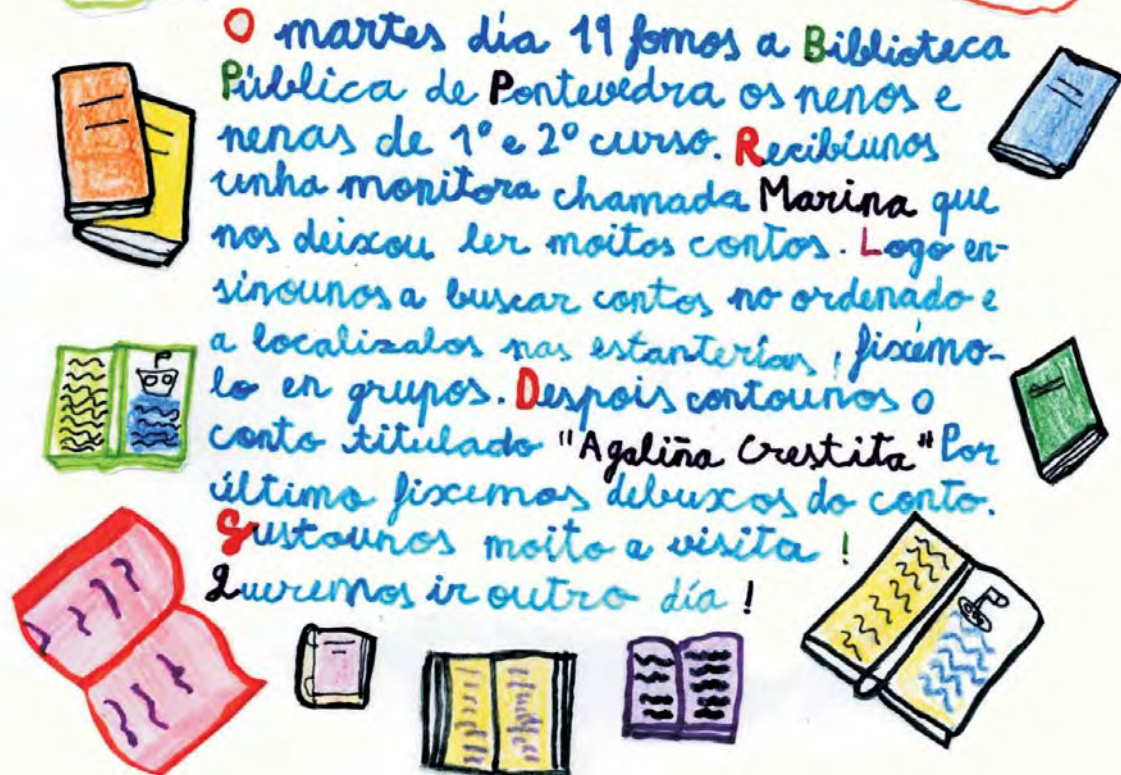 O martes día 19 fomos a Biblioteca
Pública de Pontevedra os nenos e
nenas de 1º e 2º curso. Recibíunos
unha monitora chamada Marina que
nos deixou ler moitos contos. Logo en-
sinounos a buscar contos no ordenado e
a localizalos nas estanterías, fixémo-
lo en grupos. Despois contounos o
conto titulado "A galiña Crestita" Por
último fixemos debuxos do conto.
Gustounos moito a visita !
Queremos ir outro día !